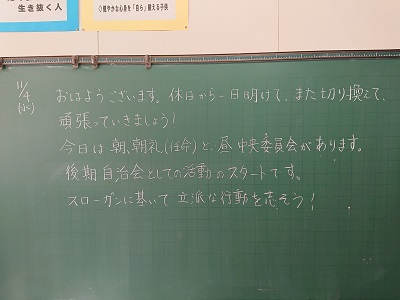 生き抜く人
◇健やかな心身を「自ら」鍛える子供
11/4
(水)
おはようございます。休日から一日明けて、また切り換えて、
頑張っていきましょう!
今日は朝、朝礼(任命)と、昼 中央委員会があります。
後期自治会としての活動のスタートです。
スローガンに基いて 立派な行動を志そう!